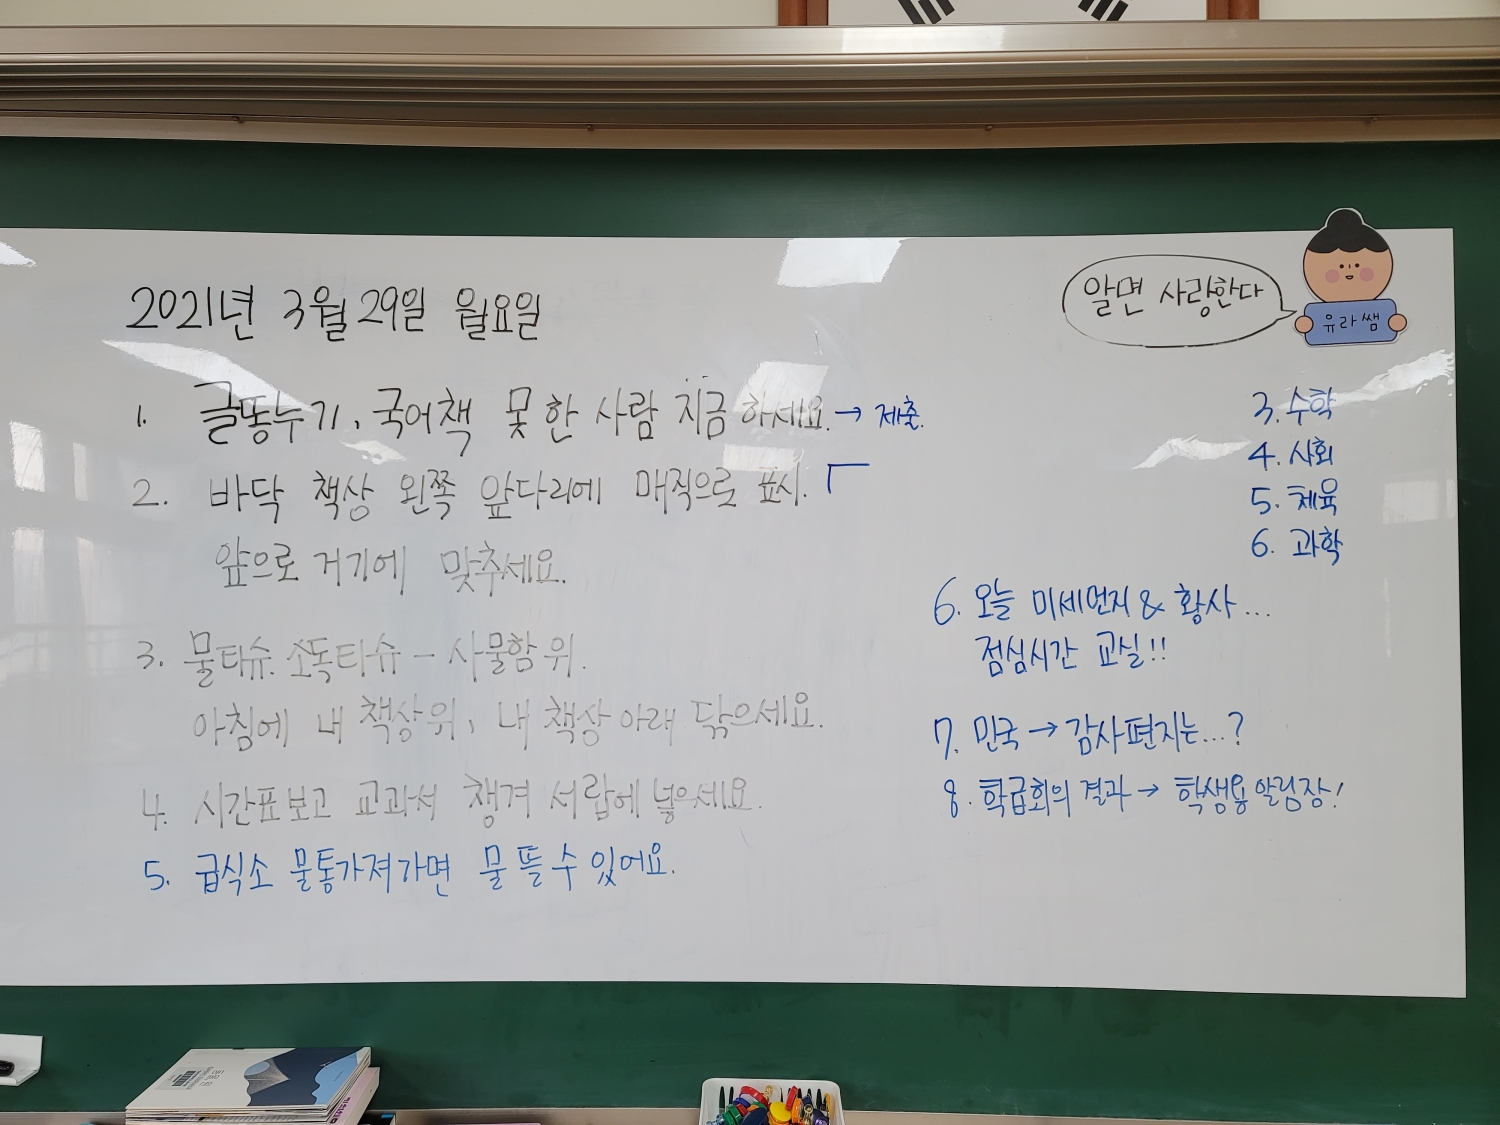 2021년 3월 29일 월요일
알면 사랑한다
유라쌤
1. 글똥누기, 국어책 못 한 사람 지금 하세요. → 제출.
2. 바닥 책상 왼쪽 앞다리에 매직으로 표시.
앞으로 거기에 맞추세요.
3. 물티슈. 소독티슈 - 사물함 위.
아침에 내 책상 위, 내 책상 아래 닦으세요.
4. 시간표 보고 교과서 챙겨 서랍에 넣으세요.
5. 급식소 물통가져가면 물 뜰 수 있어요.
3. 수학
4. 사회
5. 체육
6. 과학
6. 오늘 미세먼지 & 황사...
점심시간 교실!!
7. 민국 → 감사편지는...?
8. 학급회의 결과 → 학생용 알림장!